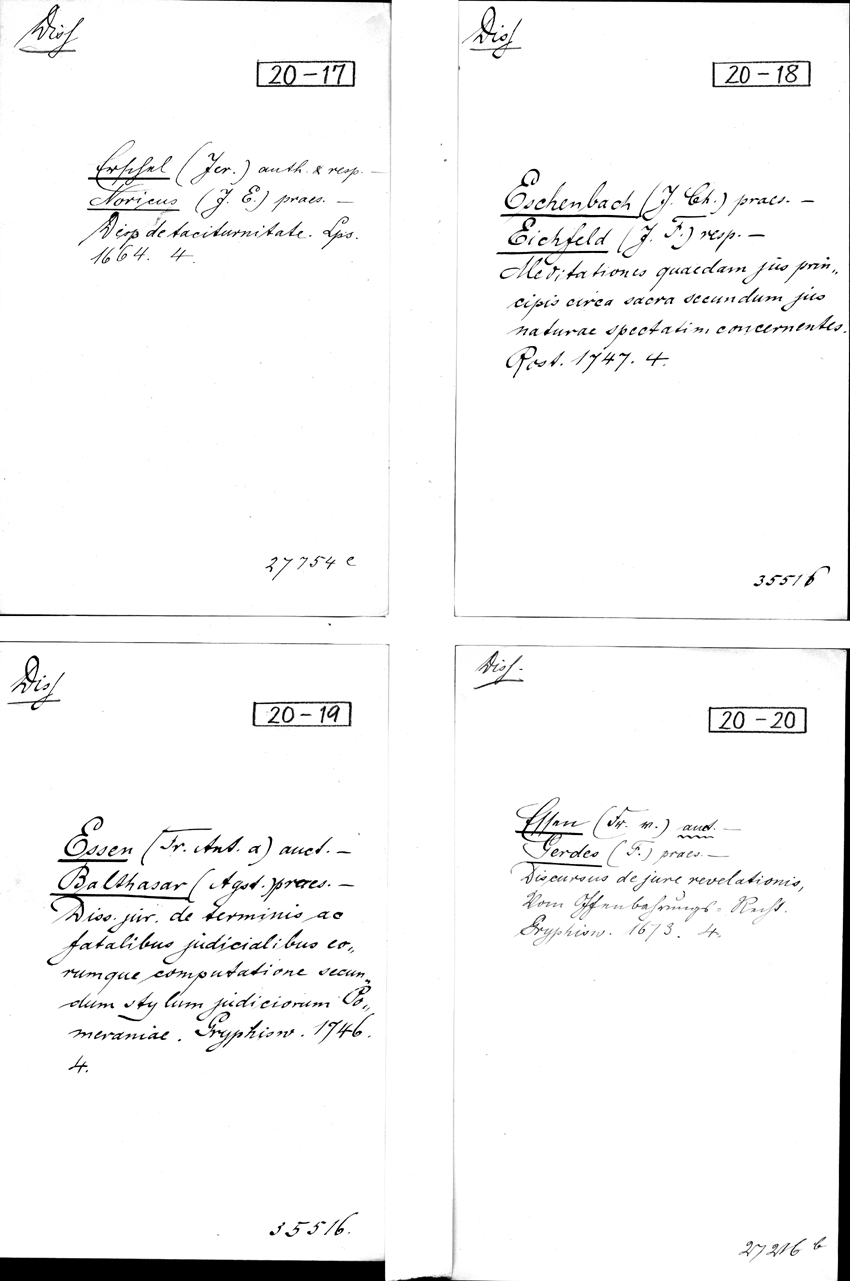 Diss
20-17
Erschel (Jer.) auth. & resp. —
Noricus (J. E.) praes. —
Disp de taciturnitate. Lps.
1664. 4.
27754 c
Diss
20-18
Eschenbach (J. Ch.) praes. —
Eichfeld (J. F.) resp. —
Meditationes quaedam jus prin„
cipis circa sacra secundum jus
naturae spectatim concernentes.
Rost. 1747. 4.
35516
Diss
20-19
Essen (Fr. Ant. a) auct. —
Balthasar (Agst.) praes. —
Diss. jur. de terminis ac
fatalibus judicialibus eo„
rumque computatione secun„
dum stylum judiciorum Po„
meraniae. Gryphisw. 1746.
4.
35516.
Diss.
20-20
Essen (Fr. v.) auct. —
Gerdes (F.) praes. —
Discursus de jure revelationis,
Vom Offenbahrungs-Recht.
Gryphisw. 1673. 4.
27216 b